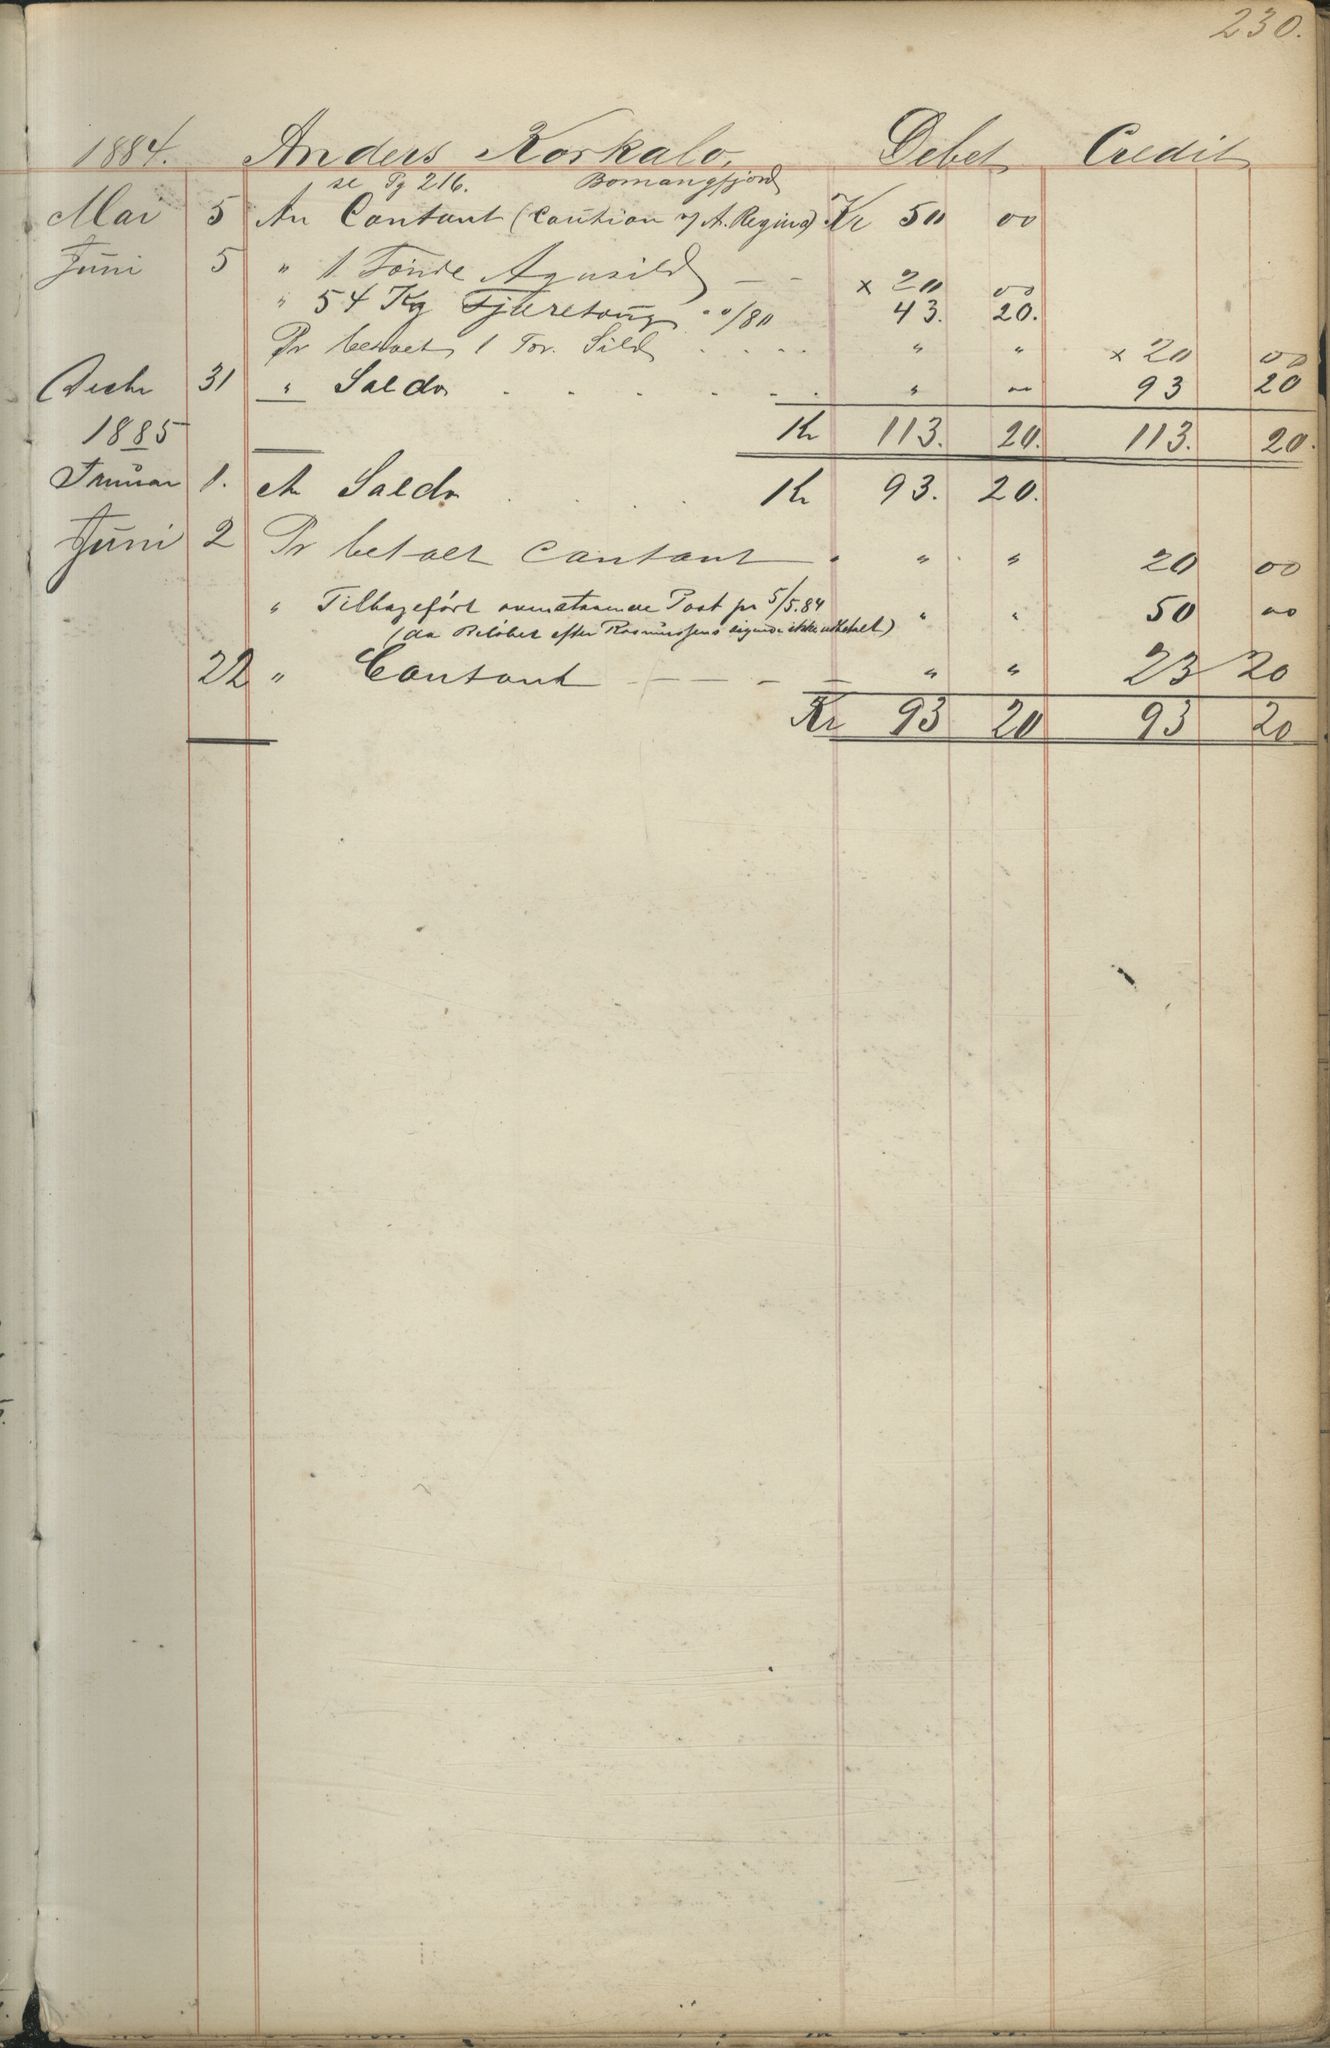 230.
1884. Anders Korkalo, Debet Credit
se Pg 216. Bomangfjord
Mai 5 An Contant (Caution af A. Regina) Kr 50 00
Juni 5 " 1 Tönde Agnsild — — x 20 00
" 54 Kg Tjæretoug " 0/80 43. 20.
Pr betalt 1 Tør. Sild . . . . " " x 20 00
Decbr 31 " Saldo . . . . . . " " 93 20
1885 Kr 113. 20. 113. 20.
Januar 1. An Saldo . . . . Kr 93. 20.
Juni 2 Pr betalt Contant . " " 20 00
" Tilbageført ovenstaaende Post pr 5/5.84 " " 50 00
(da Beløbet efter Rasmussens sigende ikke udbetalt)
22 " Contant — — — — " " 23 20
Kr 93 20 93 20